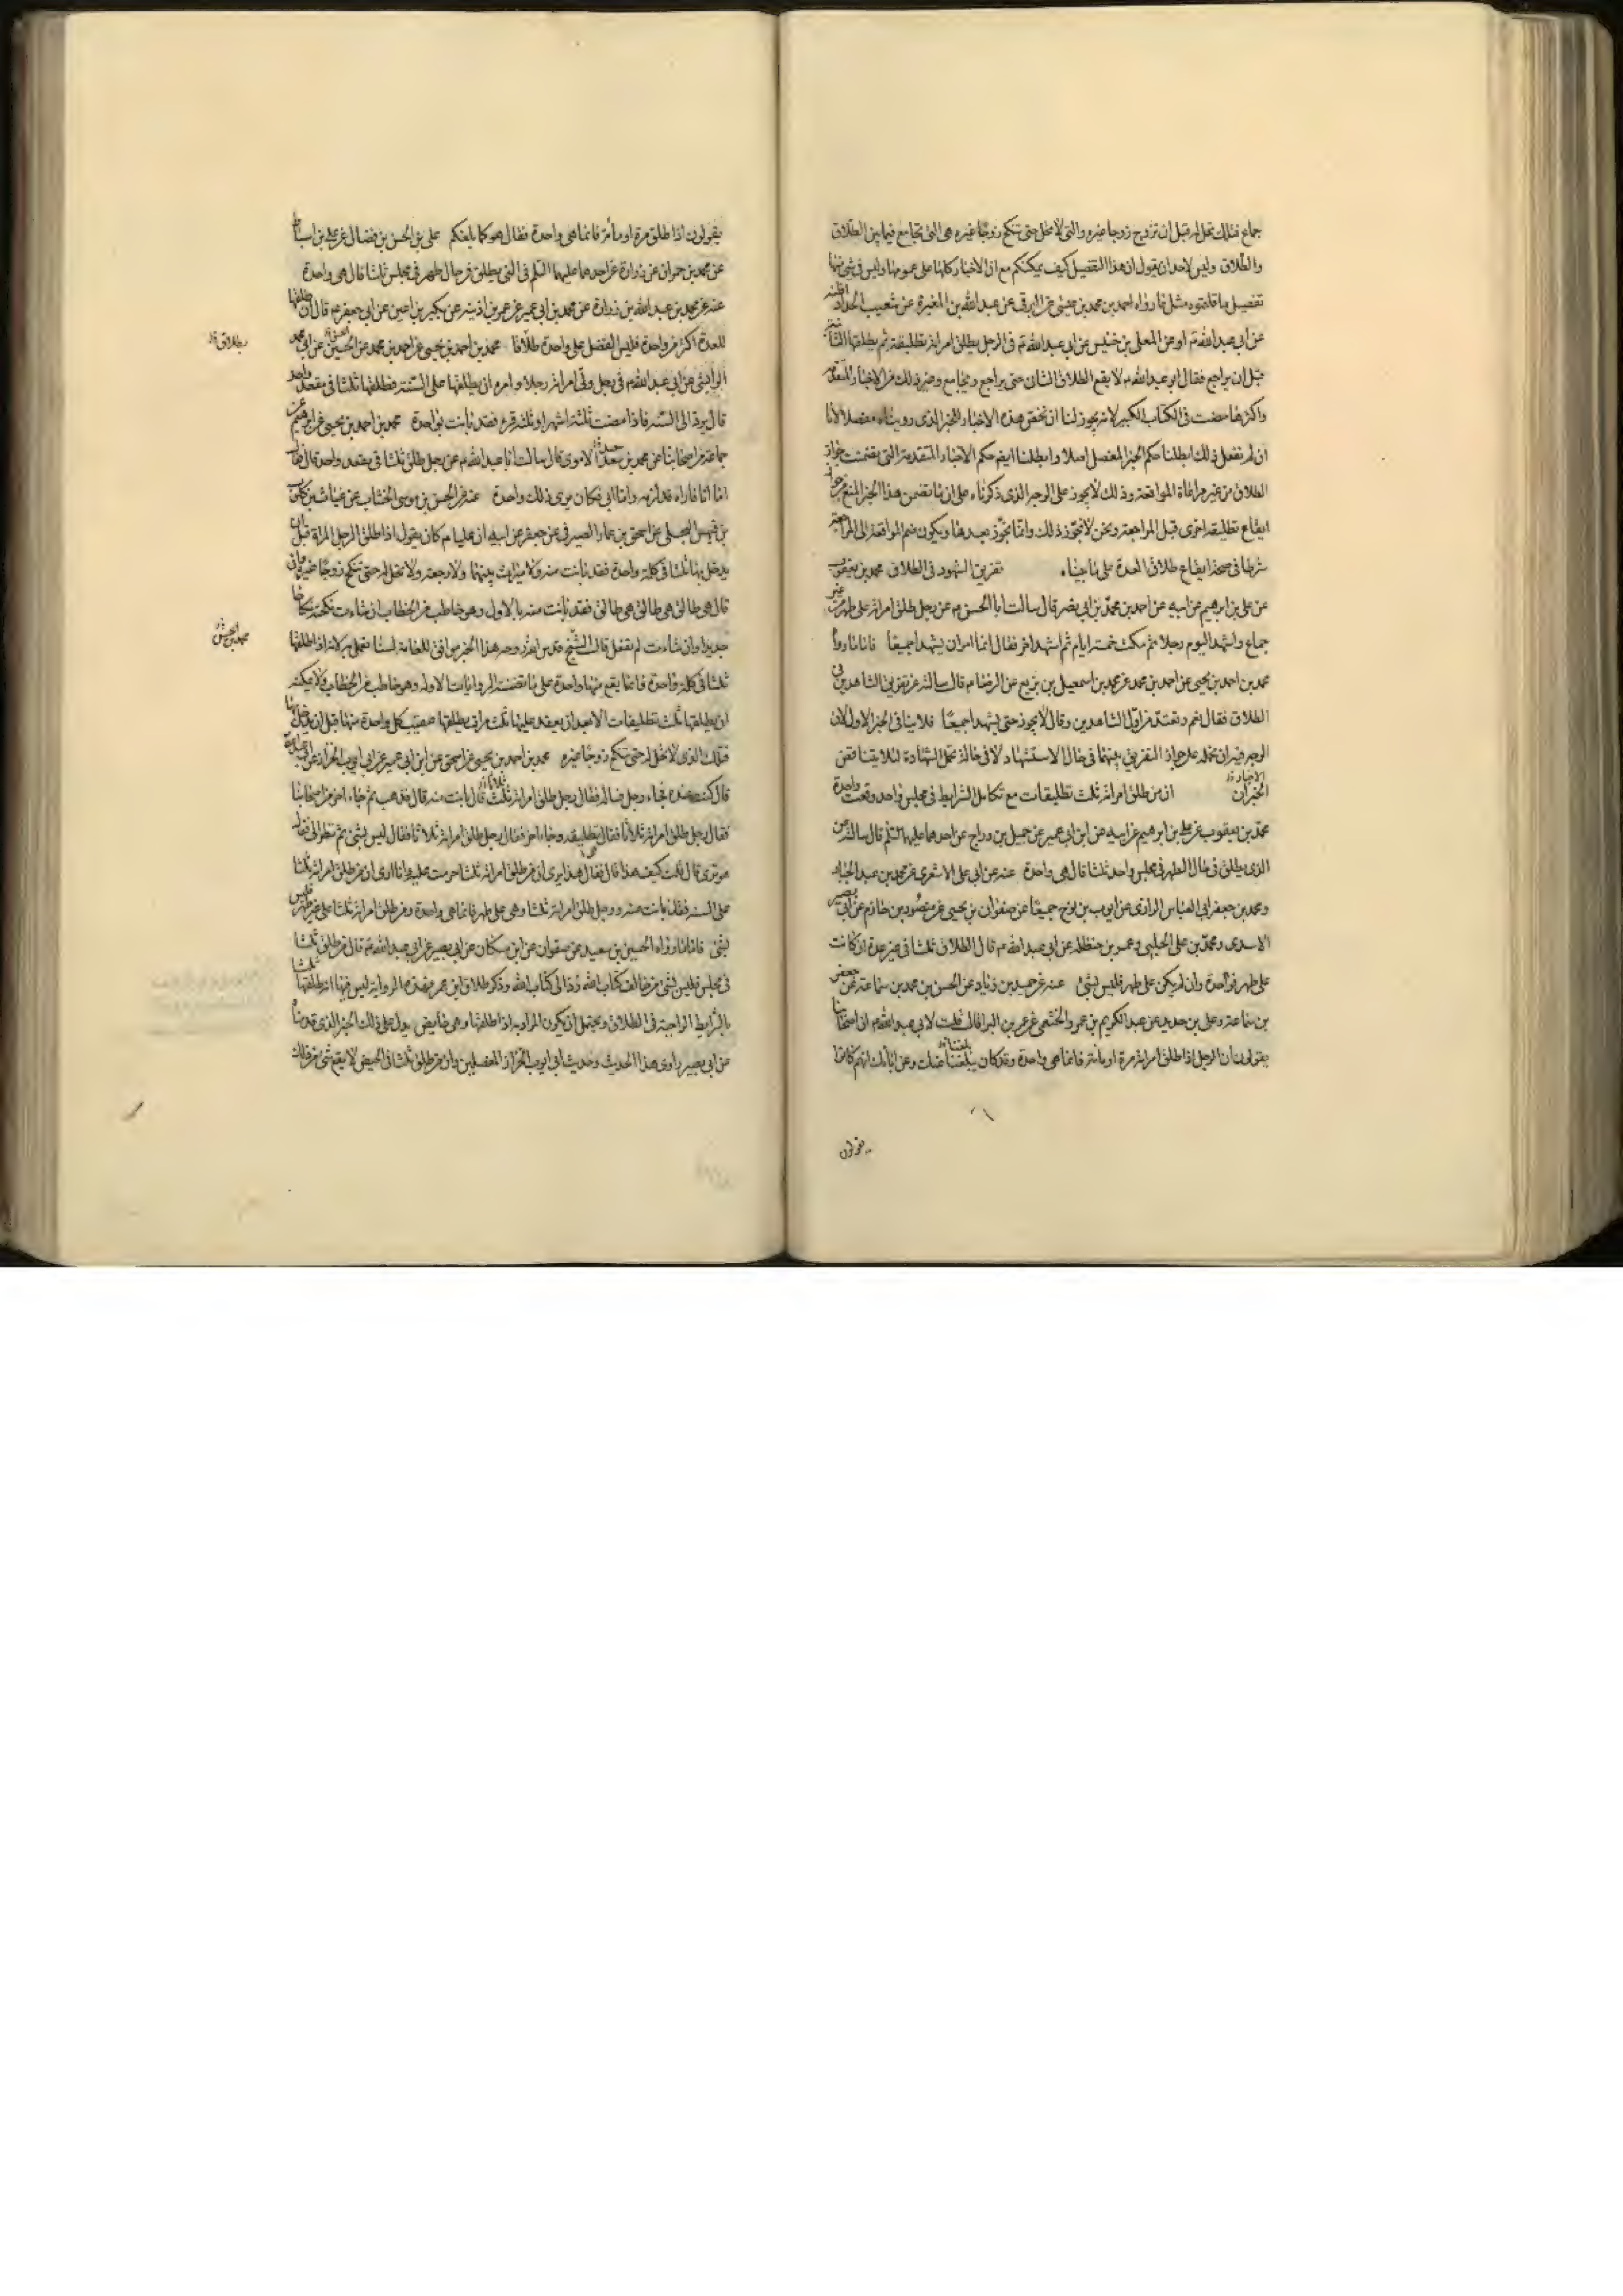 جماع فتلك تحل له قبل ان تزوج زوجا غيره والتي لا تحل حتى تنكح زوجا غيره هي التي تجامع فيما بين الطلاق
والطلاق وليس لاحد ان يقول ان هذا التفصيل كيف يمكنكم مع ان الاخبار كلها على عمومها وليس في شيء منها
تفصيل ما قلتموه مثل ما رواه احمد بن محمد بن عيسى عن البرقي عن عبد الله بن المغيرة عن شعيب الحداد اظنه
عن ابي عبد الله ع او عن المعلى بن خنيس عن ابي عبد الله ع في الرجل يطلق امراته تطليقة ثم يطلقها الثانية
قبل ان يراجع فقال ابو عبد الله ع لا يقع الطلاق الثاني حتى يراجع ويجامع وغير ذلك من الاخبار المتقدمة
واكثرها مضت في الكتاب الكبير لانه يجوز لنا ان نخص هذه الاخبار بالخبر الذي رويناه مفصلا لانا
ان لم نفعل ذلك ابطلنا حكم الخبر المفصل اصلا وابطلنا ايضا حكم الاخبار المتقدمة التي تضمنت جواز
الطلاق من غير مراعاة المواقعة وذلك لا يجوز على الوجه الذي ذكرناه على ان ما تضمن هذا الخبر المنع من جواز
ايقاع تطليقة اخرى قبل المراجعة ونحن لا نجوز ذلك وانما نجوز بعدها ويكون ضم المواقعة الى المراجعة
شرطا في صحة ايقاع طلاق العدة على ما بيناه تفريق الشهود في الطلاق محمد بن يعقوب
عن علي بن ابراهيم عن ابيه عن احمد بن محمد بن ابي نصر قال سالت ابا الحسن ع عن رجل طلق امراته على طهر من غير
جماع واشهد اليوم رجلا ثم مكث خمسة ايام ثم اشهد اخر فقال انما امر ان يشهدا جميعا فاما ما رواه
محمد بن احمد بن يحيى عن احمد بن محمد عن محمد بن اسمعيل بن بزيع عن الرضا ع قال سالته عن تفريق الشاهدين في
الطلاق فقال نعم وتعتد من اول الشاهدين وقال لا يجوز حتى يشهدا جميعا فلا ينافي الخبر الاول لان
الوجه فيه ان نحمله على جواز التفريق بينهما في حال الاستشهاد لا في حالة تحمل الشهادة لئلا يتناقض
الخبران الاخبار ان من طلق امراته ثلث تطليقات مع تكامل الشرايط في مجلس واحد وقعت واحدة
محمد بن يعقوب عن علي بن ابراهيم عن ابيه عن ابن ابي عمير عن جميل بن دراج عن احدهما عليهما السلم قال سالته عن
الذي يطلق في حال الطهر في مجلس واحد ثلثا قال هي واحدة عنه عن ابي علي الاشعري عن محمد بن عبد الجبار
ومحمد بن جعفر ابي العباس الرازي عن ايوب بن نوح جميعا عن صفوان بن يحيى عن منصور بن حازم عن ابي بصير
الاسدي ومحمد بن علي الحلبي وعمر بن حنظلة عن ابي عبد الله ع قال الطلاق ثلثا في غير عدة ان كانت
على طهر فواحدة وان لم يكن على طهر فليس بشئ عنه عن حميد بن زياد عن الحسن بن محمد بن سماعة عن جعفر
بن سماعة وعلي بن خالد عن عبد الكريم بن عمرو الخثعمي عن عمر بن البراء قال قلت لابي عبد الله ع ان اصحابنا
يقولون ان الرجل اذا طلق امراته مرة او مائة فانما هي واحدة وقد كان يبلغنا عنك وعن ابائك انهم كانوا
يقولون
يقولون اذا طلق مرة او مائة فانما هي واحدة فقال هو كما بلغكم علي بن الحسن بن فضال عن علي بن اسباط
عن محمد بن حمران عن زرارة عن احدهما عليهما السلم في التي يطلق في حال طهر في مجلس ثلثا قال هي واحدة
عنه عن محمد بن عبد الله بن زرارة عن محمد بن ابي عمير عن عمر بن اذينة عن بكير بن اعين عن ابي جعفر ع قال ان طلقها
للعدة اكثر من واحدة فليس الفضل على واحدة طلاقا محمد بن احمد بن يحيى عن احمد بن محمد عن الحسين عن ابي محمد
الوابشي عن ابي عبد الله ع في رجل ولى امراته رجلا وامره ان يطلقها على السنة فطلقها ثلثا في مقعد واحد
قال يرد الى السنة فاذا مضت ثلثة اشهر او ثلثة قروء فقد بانت بواحدة محمد بن احمد بن يحيى عن ابراهيم عن
جماعة من اصحابنا عن محمد بن سعد الاموي قال سالت ابا عبد الله ع عن رجل طلق ثلثا في مقعد واحد قال فقال
اما انا فاراه قد لزمه واما ابي فكان يرى ذلك واحدة عنه عن الحسن بن موسى الخشاب عن غياث بن كلوب
بن فيهس البجلي عن اسحق بن عمار الصيرفي عن جعفر عن ابيه ان عليا ع كان يقول اذا طلق الرجل المراة قبل ان
يدخل بها ثلثا في كلمة واحدة فقد بانت منه ولا ميراث بينهما ولا رجعة ولا تحل له حتى تنكح زوجا غيره وان
قال هي طالق هي طالق هي طالق فقد بانت منه بالاول وهو خاطب من الخطاب ان شاءت نكحته نكاحا
جديدا وان شاءت لم تفعل قال الشيخ وجه هذا الخبر موافق للعامة لسنا نعمل به لانه اذا طلقها
ثلثا في كلمة واحدة فانما يقع منها واحدة على ما تضمنه الروايات الاولة وهو خاطب من الخطاب ولا يمكنه
ان يطلقها ثلث تطليقات الا بعد ان يعقد عليها ثلث مرات يطلقها عقيب كل واحدة منها قبل ان يدخل بها
فتلك الذي لا تحل له حتى تنكح زوجا غيره محمد بن احمد بن يحيى عن اسحق عن ابن ابي عمير عن ابي ايوب الخزاز عن ابي عبد الله ع
قال كنت عنده فجاء رجل فساله فقال رجل طلق امراته ثلث قال بانت منه قال فذهب ثم جاء اخر من اصحابنا
فقال رجل طلق امراته ثلاثا فقال تطليقة وجاء اخر فقال رجل طلق امراته ثلاثا فقال ليس بشئ ثم نظر الي فقال
هو ترى قال قلت كيف هذا قال فقال هذا يرى ان من طلق امراته ثلثا حرمت عليه وانا ارى ان من طلق امراته ثلثا
على السنة فقد بانت منه ورجل طلق امراته ثلثا وهي على طهر فانما هي واحدة ومن طلق امراته ثلثا على غير طهر فليس
بشئ فاما ما رواه الحسين بن سعيد عن صفوان عن ابن مسكان عن ابي بصير عن ابي عبد الله ع قال من طلق ثلثا
في مجلس فليس بشئ من خالف كتاب الله رد الى كتاب الله وذكر طلاق ابن عمر فهذه الرواية ليس فيها انه طلقها ثلثا
بالشرايط الواجبة في الطلاق ويحتمل ان يكون المراد به اذا طلقها وهي حايض يدل على ذلك الخبر الذي قدمناه
عن ابي بصير راوي هذا الحديث وحديث ابي ايوب الخزاز المفصلين وان من طلق ثلثا في الحيض لا يقع شيء من ذلك